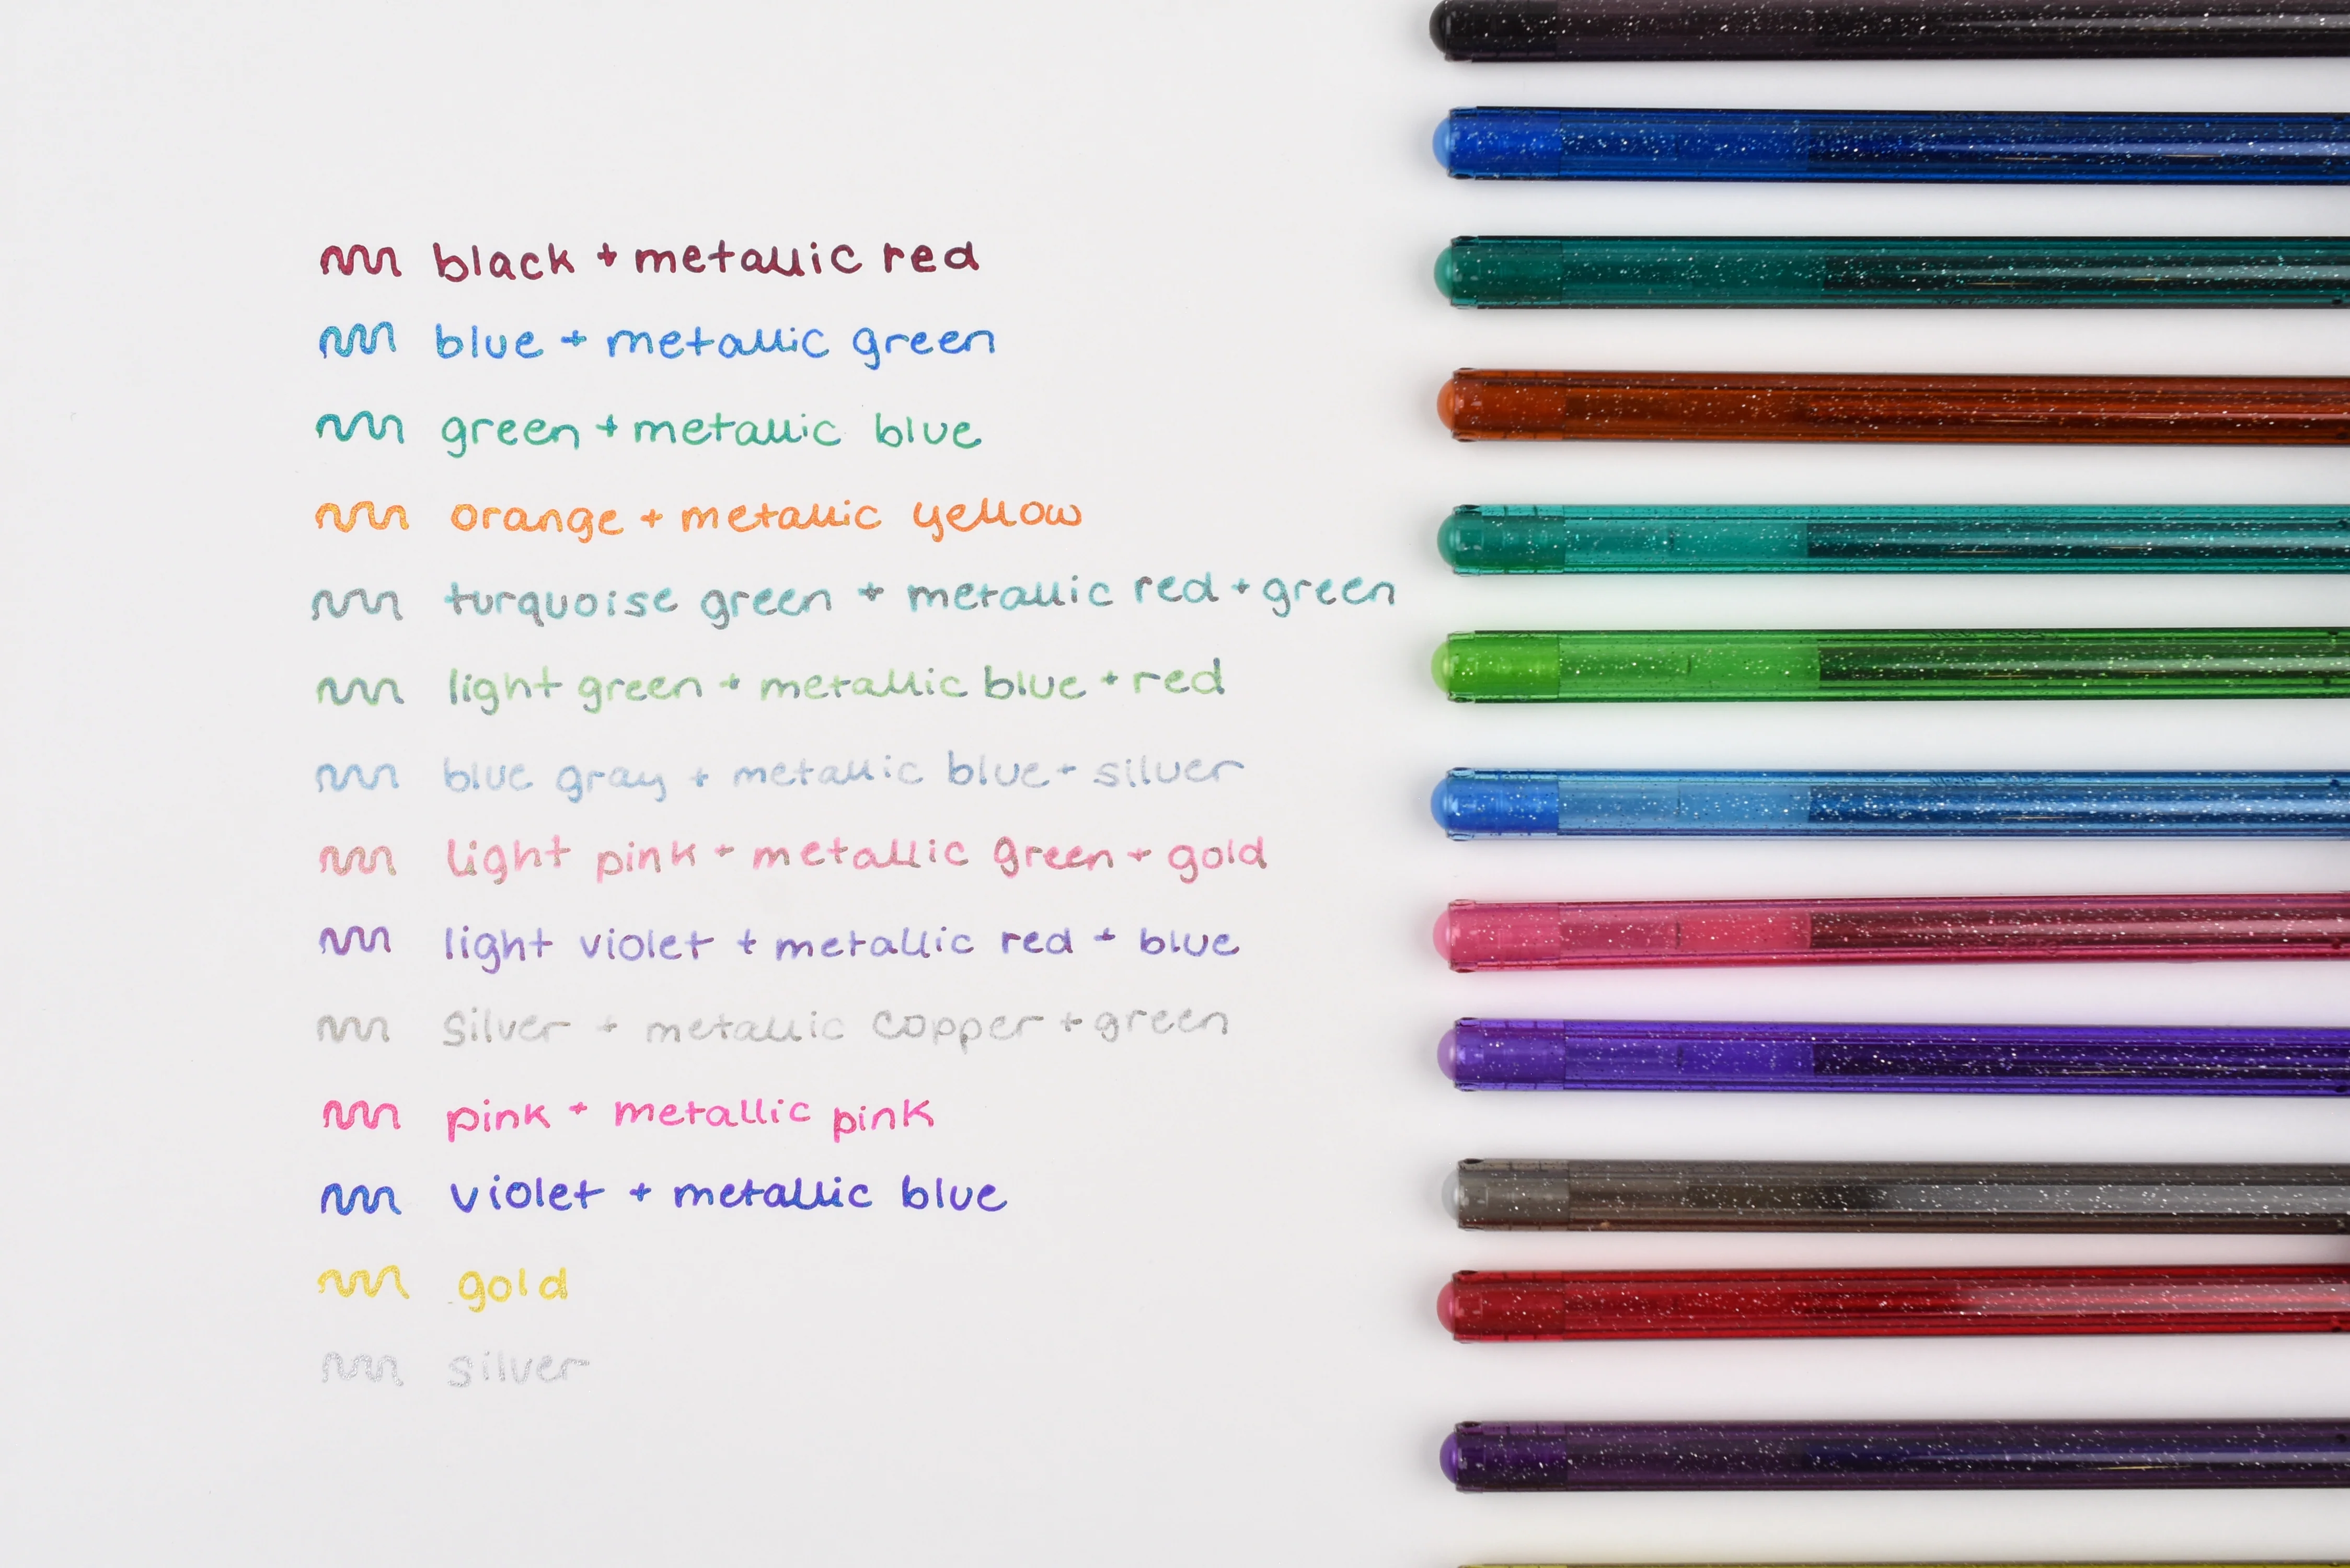 black + metallic red
blue + metallic green
green + metallic blue
orange + metallic yellow
turquoise green + metallic red + green
light green + metallic blue + red
blue gray + metallic blue + silver
light pink + metallic green + gold
light violet + metallic red + blue
Silver + metallic copper + green
pink + metallic pink
violet + metallic blue
gold
silver